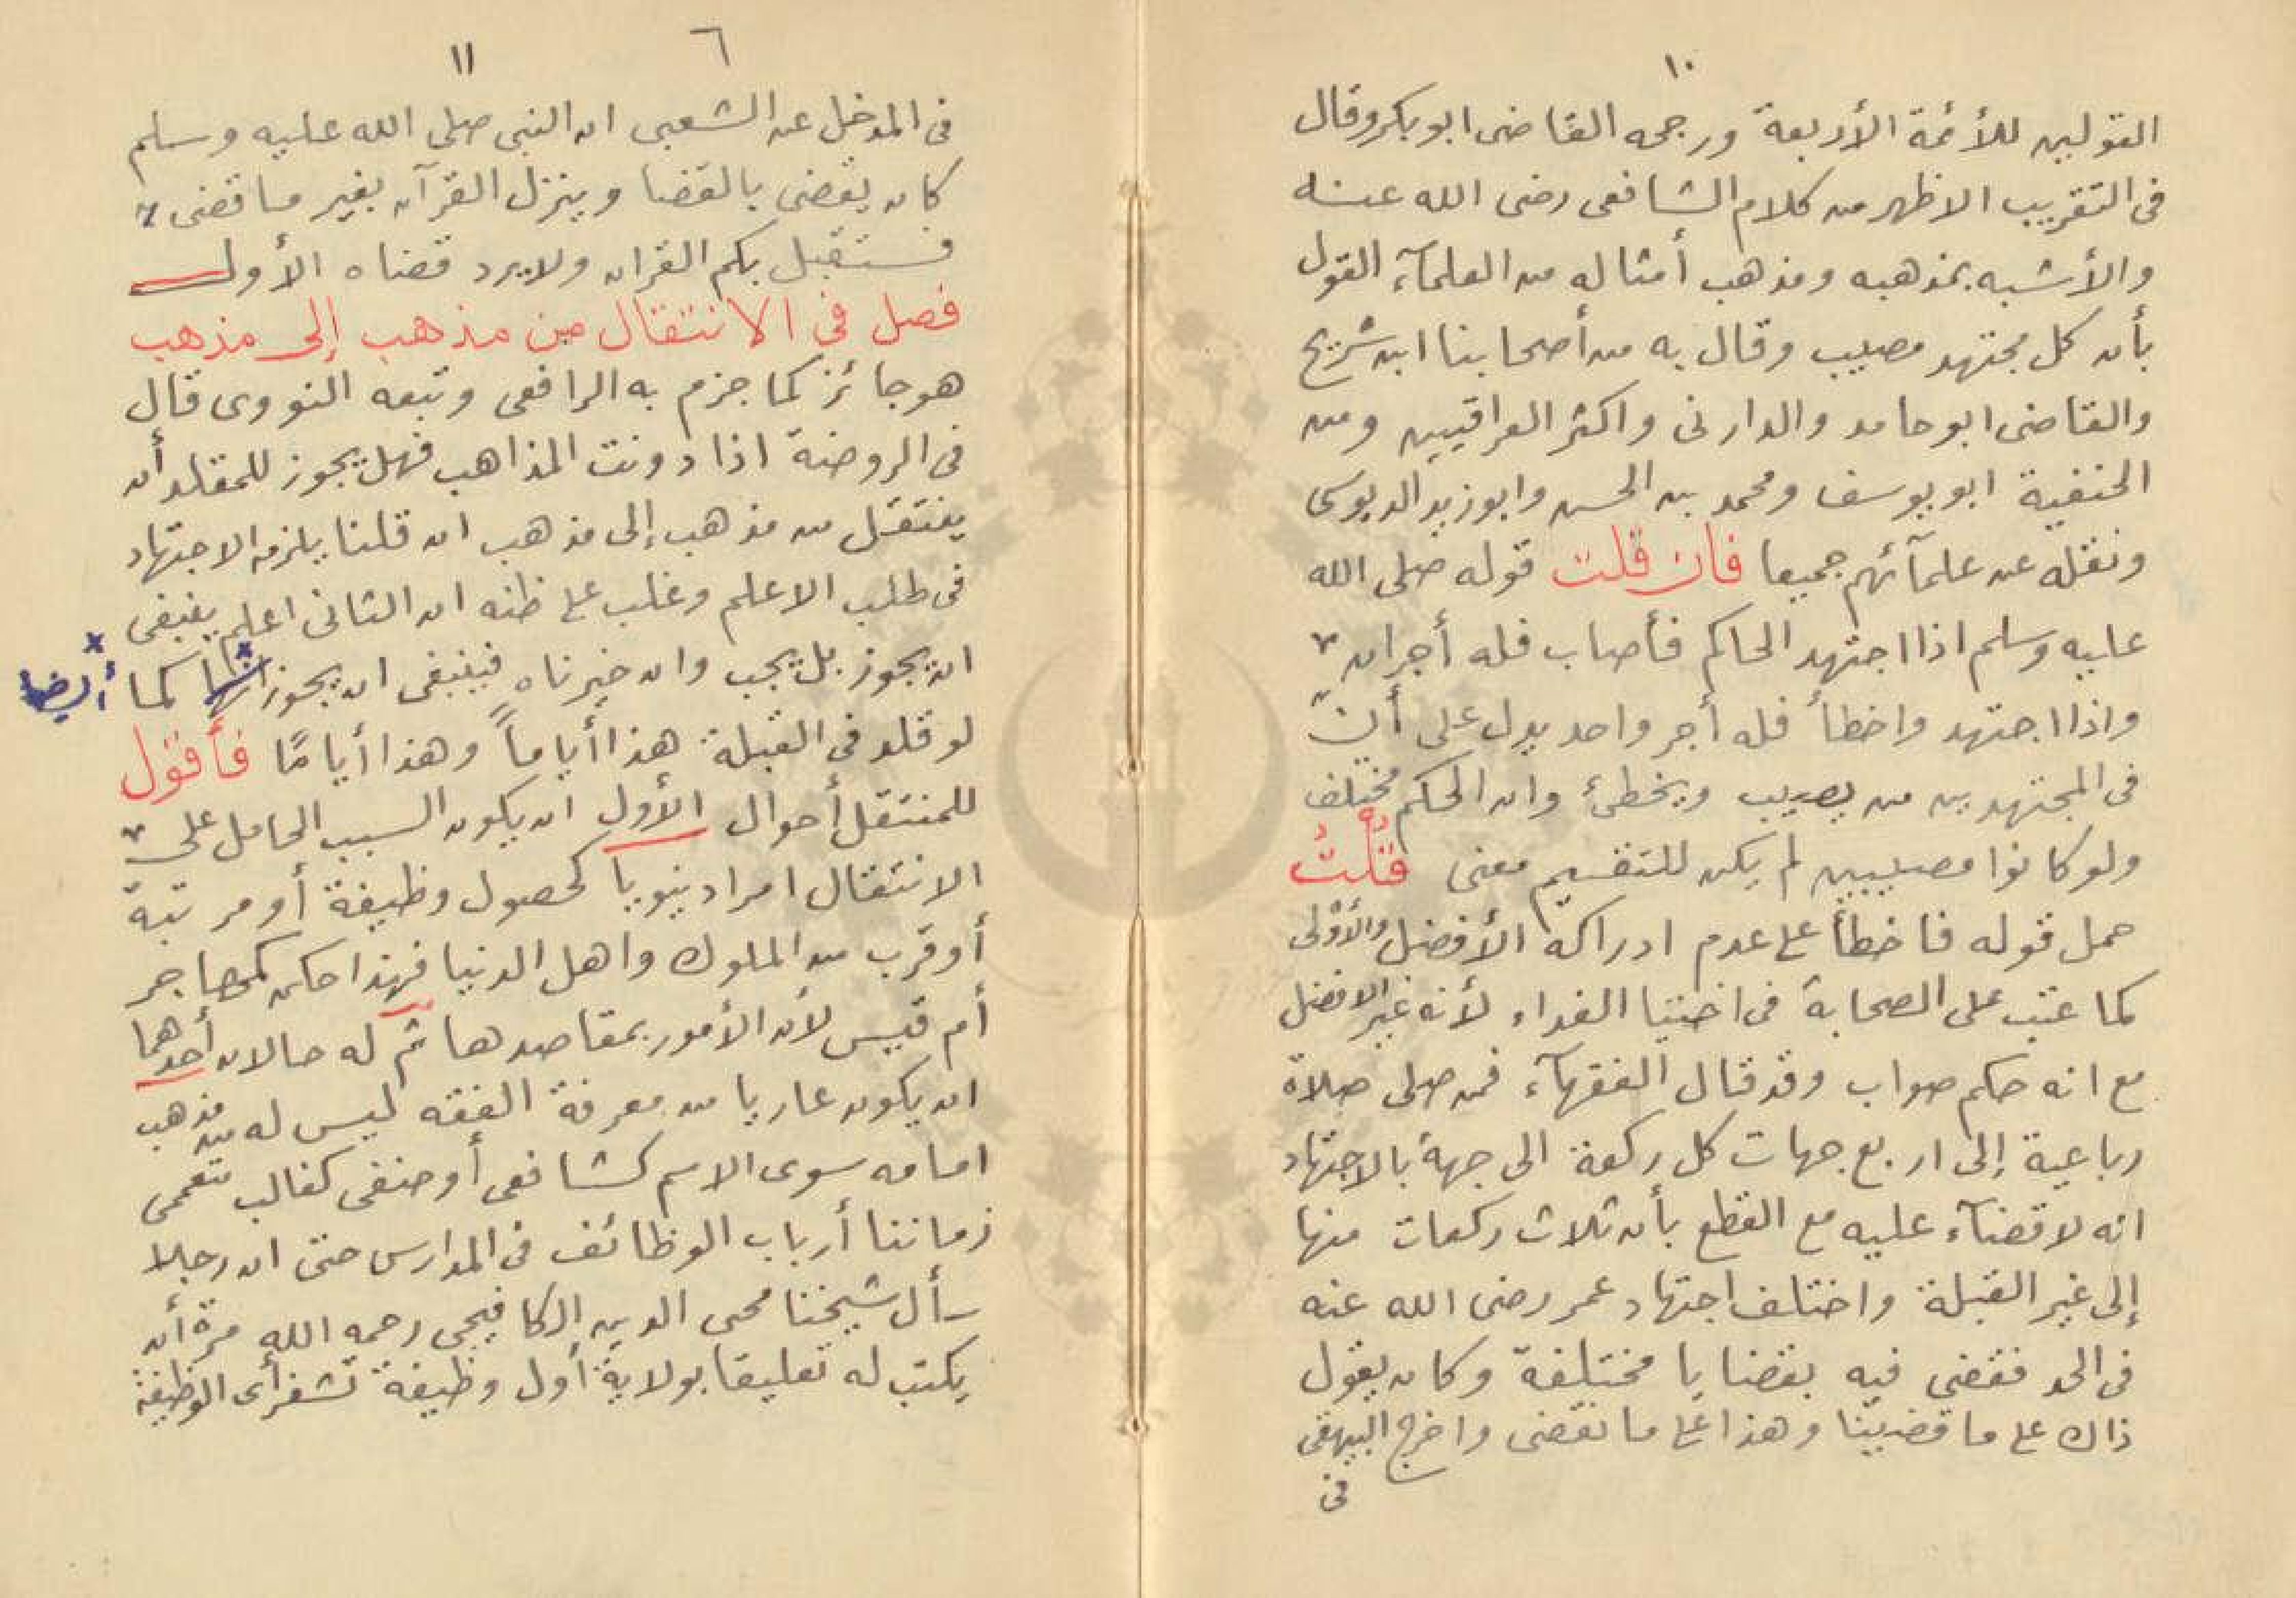 ١٠
القولين للأئمة الأربعة ورجحه القاضى ابو بكر وقال
فى التقريب الاظهر من كلام الشافعى رضى الله عنه
والأشبه بمذهبه ومذهب أمثاله من العلمآء القول
بأن كل مجتهد مصيب وقال به من أصحابنا ابن شريح
والقاضى ابو حامد والدارنى واكثر العراقيين ومن
الحنفية ابو يوسف ومحمد بن الحسن وابو زيد الدبوسى
ونقله عن علمآئهم جميعا فان قلت قوله صلى الله
عليه وسلم اذا اجتهد الحاكم فأصاب فله أجران
واذا اجتهد واخطأ فله أجر واحد يدل على أنّ
فى المجتهدين من يصيب ويخطئ وان الحكم مختلف
ولو كانوا مصيبين لم يكن للتقسيم معنى قلتُ
حمل قوله فاخطأ على عدم ادراكه الأفضل والأوْلى
كما عتب على الصحابة فى اختيا الفداء لأنه غير الافضل
مع انه حكم صواب وقد قال الفقهآء فمن صلى صلاة
رباعية إلى اربع جهات كل ركعة الى جهة بالاجتهاد
انه لا قضآء عليه مع القطع بأن ثلاث ركعات منها
إلى غير القبلة واختلف اجتهاد عمر رضى الله عنه
فى الحد فقضى فيه بقضايا مختلفة وكان يقول
ذاك على ما قضينا وهذا على ما نقضى واخرج البيهقى
فى
٦
١١
فى المدخل عن الشعبى ان النبى صلى الله عليه وسلم
كان يقضى بالقضا وينزل القرآن بغير ما قضى
فستقبل بكم القران ولا يرد قضاه الأول
فصل فى الانتقال من مذهب إلى مذهب
هو جائز كما جزم به الرافعى وتبعه النووى قال
فى الروضة اذا دونت المذاهب فهل يجوز للمقلد أن
ينتقل من مذهب إلى مذهب ان قلنا يلزمه الاجتهاد
فى طلب الاعلم وغلب على ظنه ان الثانى اعلم ينبغى
ان يجوز بل يجب وان خيرناه فينبغى ان يجوز كما أيضا
لو قلد فى القبلة هذا أياماً وهذا أيامًا فأقول
للمنتقل أحوال الأول ان يكون السبب الحامل على
الانتقال امرا دنيويا كحصول وظيفة أو مرتبة
أو قرب من الملوك واهل الدنيا فهذا حكمه كمهاجر
أم قيس لأن الأمور بمقاصدها ثم له حالان أحدهما
ان يكون عاريا من معرفة الفقه ليس له من مذهب
امامه سوى الاسم كشافعى أو حنفى كغالب متعممى
زماننا أرباب الوظائف فى المدارس حتى ان رجلا
سأل شيخنا محى الدين الكافيجى رحمه الله مرة أن
يكتب له تعليقا بولاية أول وظيفة تشغر أى الوظيفة